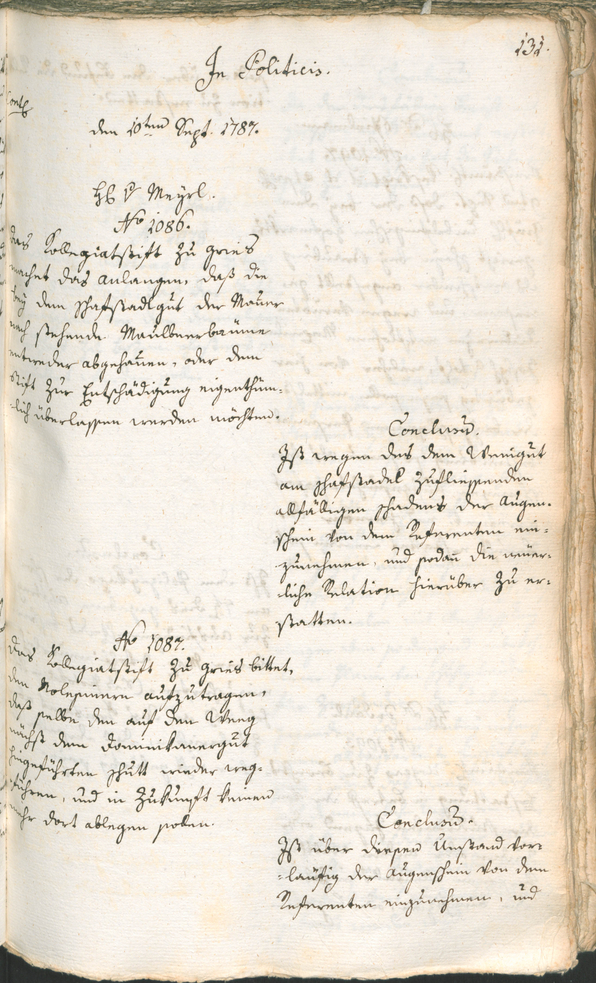 131.
In Politicis.
den 10ten Sept. 1787.
H. v. Meyrl.
No 1086.
das Kollegiatstift zu Gries
machet das Anlangen, daß die
bey dem Schafstadlgut der Mauer
nach stehende Maulbeerbäume
entweder abgehauen, oder dem
Stift zur Entschädigung eigenthüm-
lich überlassen werden möchten.
Conclusum.
Ist wegen des dem Weingut
am Schafstadel zufliessenden
allfälligen Schadens der Augen-
schein von dem Referenten ein-
zunehmen, und sodann die
liche Relation hierüber zu er-
statten.
No 1087.
das Kollegiatstift zu Gries bittet,
den aufzutragen,
daß selbe den auf den Weeg
nächst dem Dominikanergut
hingeführten Schutt wieder weg-
führen, und in Zukunft keinen
mehr dort ablegen solen.
Conclusum.
Ist über diesen Umstand vor-
läufig der Augenschein von dem
Referenten einzunehmen, und